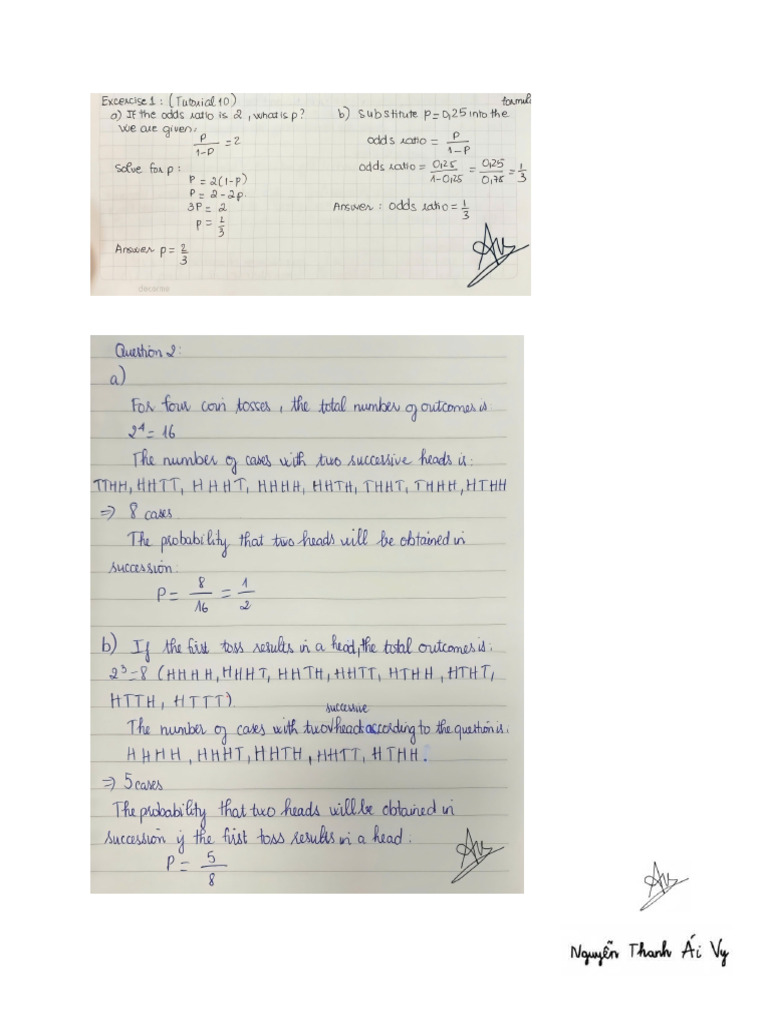 Excercise 1 : (Tutorial 10)
a) If the odds ratio is 2 , what is p?
We are given:
p/(1-p) = 2
Solve for p :
p = 2(1-p)
p = 2-2p.
3p = 2
p = 1/3
Answer p = 2/3
b) Substitute p=0,25 into the formula
odds ratio = p/(1-p)
odds ratio = 0,25/(1-0,25) = 0,25/0,75 = 1/3
Answer : odds ratio = 1/3
Question 2:
a)
For four coin tosses , the total number of outcomes is
2^4 = 16
The number of cases with two successive heads is:
TTHH, HHTT, HHHT, HHHH, HHTH, THHT, THHH, HTHH
⇒ 8 cases
The probability that two heads will be obtained in
succession:
P = 8/16 = 1/2
b) If the first toss results in a head, the total outcomes is:
2^3=8 (HHHH, HHHT, HHTH, HHTT, HTHH, HTHT,
HTTH, HTTT).
The number of cases with two successive head according to the question is:
HHHH, HHHT, HHTH, HHTT, HTHH.
⇒ 5 cases
The probability that two heads will be obtained in
succession if the first toss results in a head:
P = 5/8
Nguyễn Thanh Ái Vy